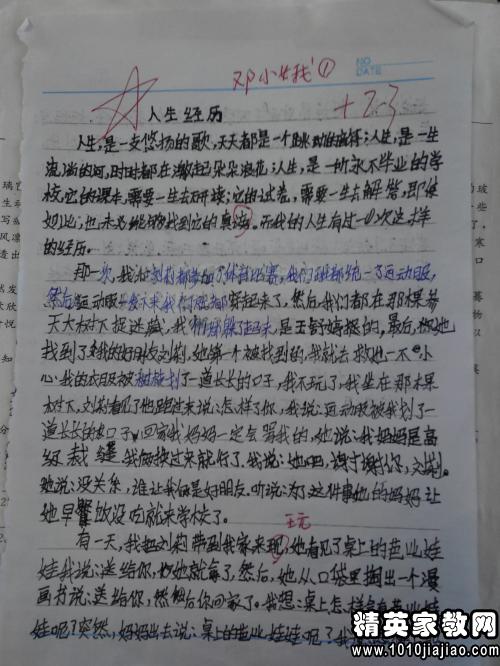 邓小戋①
NO
DATE
+23
人生经历
人生,是一支悠扬的歌,天天都是一个跳动的音符;人生,是一
流淌的河,时时都在激起朵朵浪花;人生,是一所永不毕业的学
校,它的课本,需要一生去研读;它的试卷,需要一生去解答,即使
如此,也未必能够找到它的真谛。而我的人生有过一次这样
的经历。
那一次,我和刘莉都参加了体育比赛,我们班都统一了运动服,
然后 运动服 我们 都穿起来了。然后我们都在那棵参
天大树下捉迷藏,我 都躲了起来,是王 的,最后,她
找到了我的好朋友刘莉,她第一个被找到的,我就去救她一不小
心,我的衣服被树枝划了一道长长的口子,我不玩了,我坐在那棵
树下,刘莉看见了他跑过来说:怎样了你,我说:运动服被我划了一
道长长的口子,回家我妈妈一定会骂我的,她说:我妈妈是高
级裁缝,我俩换过来就行了。我说:她吧,谢谢你,刘莉。
她说:没关系,谁让我俩是好朋友。听说:为了这件事她的妈妈让
她早餐饭没吃就来学校了。
玩
有一天,我把刘莉带到我家来玩,她看见了桌上的芭比娃
娃我说:送给你,她就每了,然后,她从口袋里掏出一个漫
画书说:送给你,然后你回家了。我想:桌上怎样会有芭比娃
娃呢?突然,妈妈出去说:桌上的芭比娃娃呢?我
精英家教网
www.1010jiajiao.com